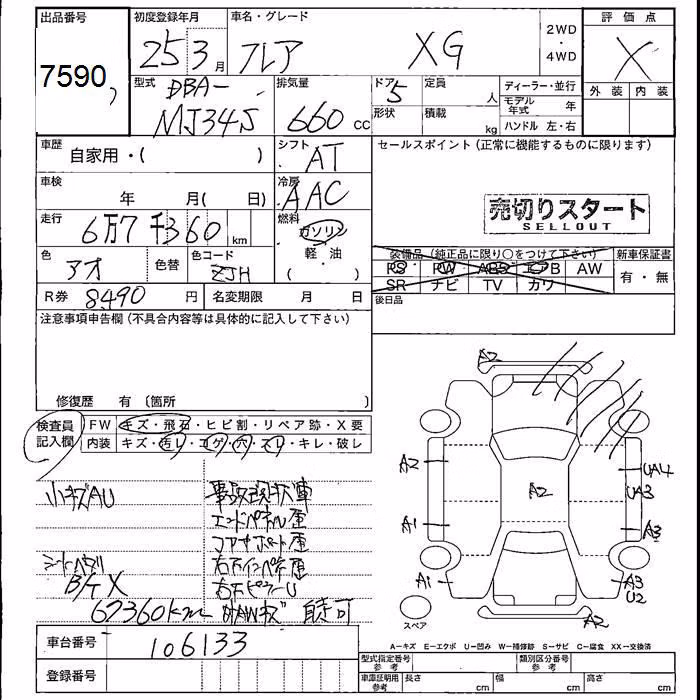 出品番号 初度登録年月 車名・グレード 2WD・4WD 評価点
7590 25 3月 フレア XG X
型式 排気量 ドア 定員 人 ディーラー・並行 外装 内装
DBA-
MJ34S 660cc 5 形状 積載 kg モデル年式 年
ハンドル 左・右
車歴 自家用・( ) シフト AT セールスポイント (正常に機能するものに限ります)
車検 年 月( 日) 冷房 AAC
売切りスタート
SELLOUT
走行 6万7千360km 燃料 ガソリン
軽・油
( )
色 アオ 色替 色コード ZJH
装備品 (純正品に限り○をつけて下さい) 新車保証書
PS PW ABS エアB AW 有・無
SR ナビ TV カワ
R券 8490円 名変期限 月 日 後日品
注意事項申告欄 (不具合内容等は具体的に記入して下さい)
修復歴 有 (箇所
検査員記入欄 FW キズ・飛石・ヒビ割・リペア跡・X要
内装 キズ・汚レ・コゲ・穴・スレ・キレ・破レ
小キズAU 事故現状車
エンドパネル
シートヘタリ
B/T X
67360km
車台番号 106133
登録番号
A2
A2
A2 UA4
UA3
A1 A3
A1 A3
U2
スペア A2
A-キズ E-エクボ U-凹み W-補修跡 S-サビ C-腐食 XX-交換済
型式指定番号 参考 類別区分番号 参考
車庫証明用 参考 長さ cm 幅 cm 高さ cm